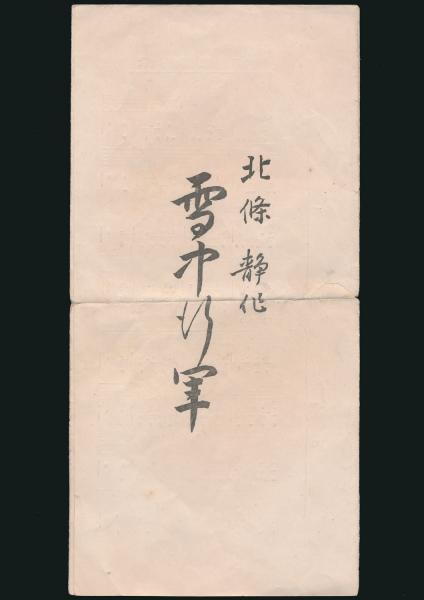 北條 静作
雪中行軍